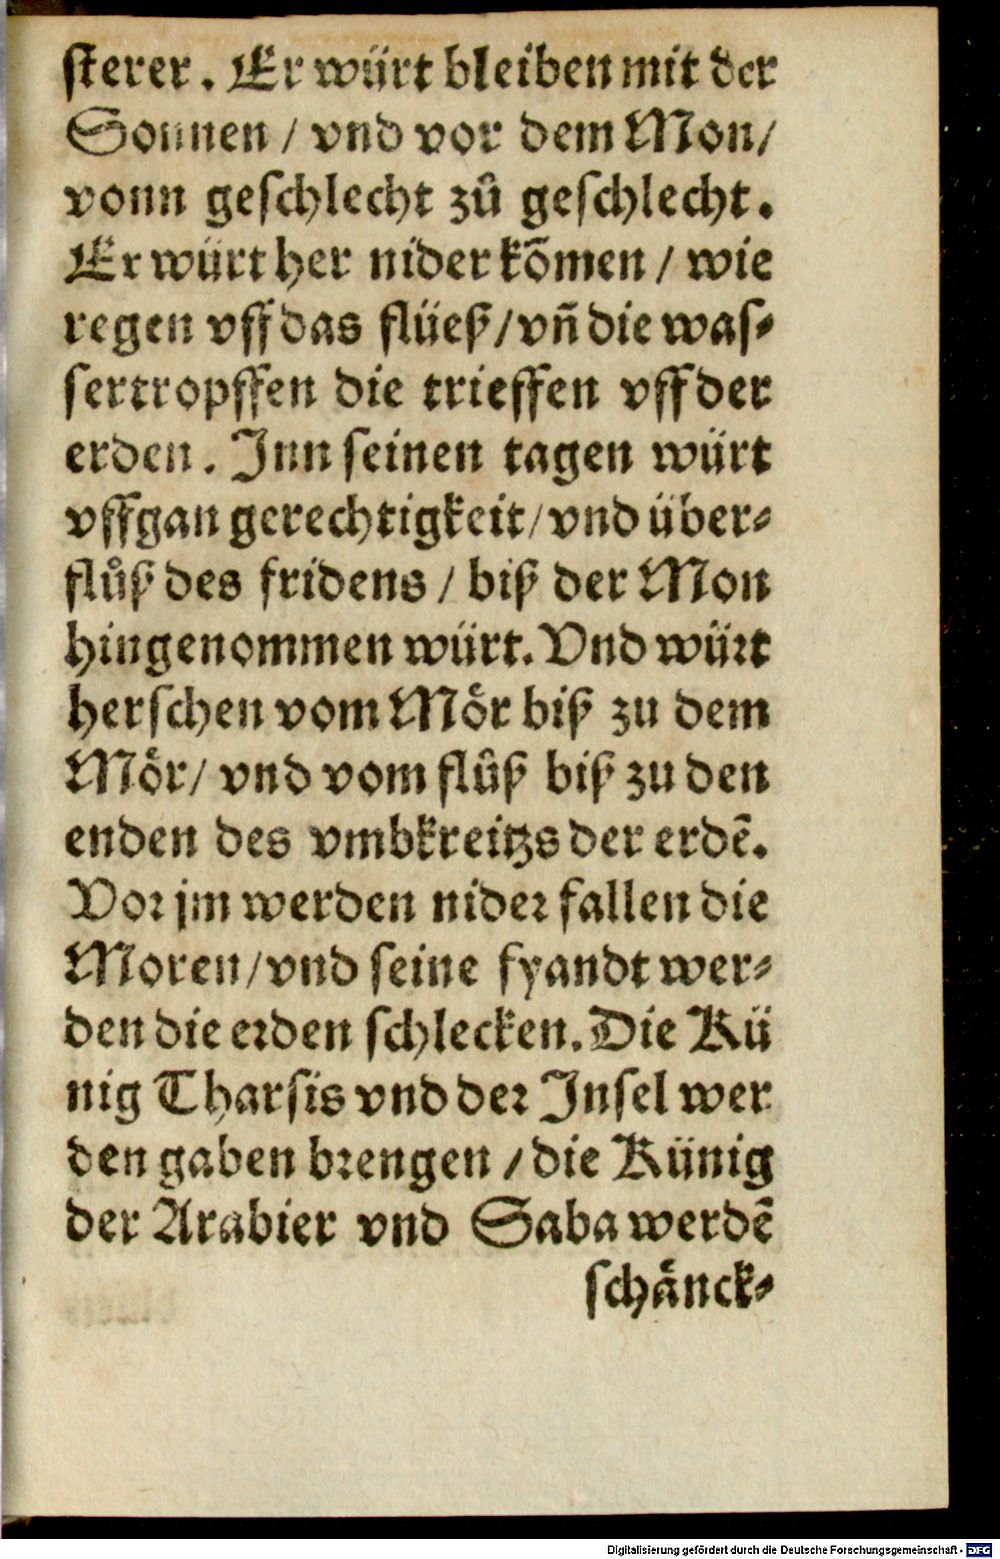 ſterer. Er würt bleiben mit der
Sonnen / vnd vor dem Mon/
vonn geſchlecht zů geſchlecht.
Er würt her nider kõmen / wie
regen vff das flüeß/vñ die waſ⸗
ſertropffen die trieffen vff der
erden. Jnn ſeinen tagen würt
vffgan gerechtigkeit/vnd über⸗
flůß des fridens / biß der Mon
hingenommen würt. Vnd würt
herſchen vom Moͤr biß zu dem
Moͤr/ vnd vom flůß biß zu den
enden des vmbkreitzs der erdẽ.
Vor jm werden nider fallen die
Moren/vnd ſeine fyandt wer⸗
den die erden ſchlecken. Die Kü
nig Tharſis vnd der Jnſel wer
den gaben brengen / die Künig
der Arabier vnd Saba werdẽ
ſchaͤnck⸗
Digitalisierung gefördert durch die Deutsche Forschungsgemeinschaft - DFG